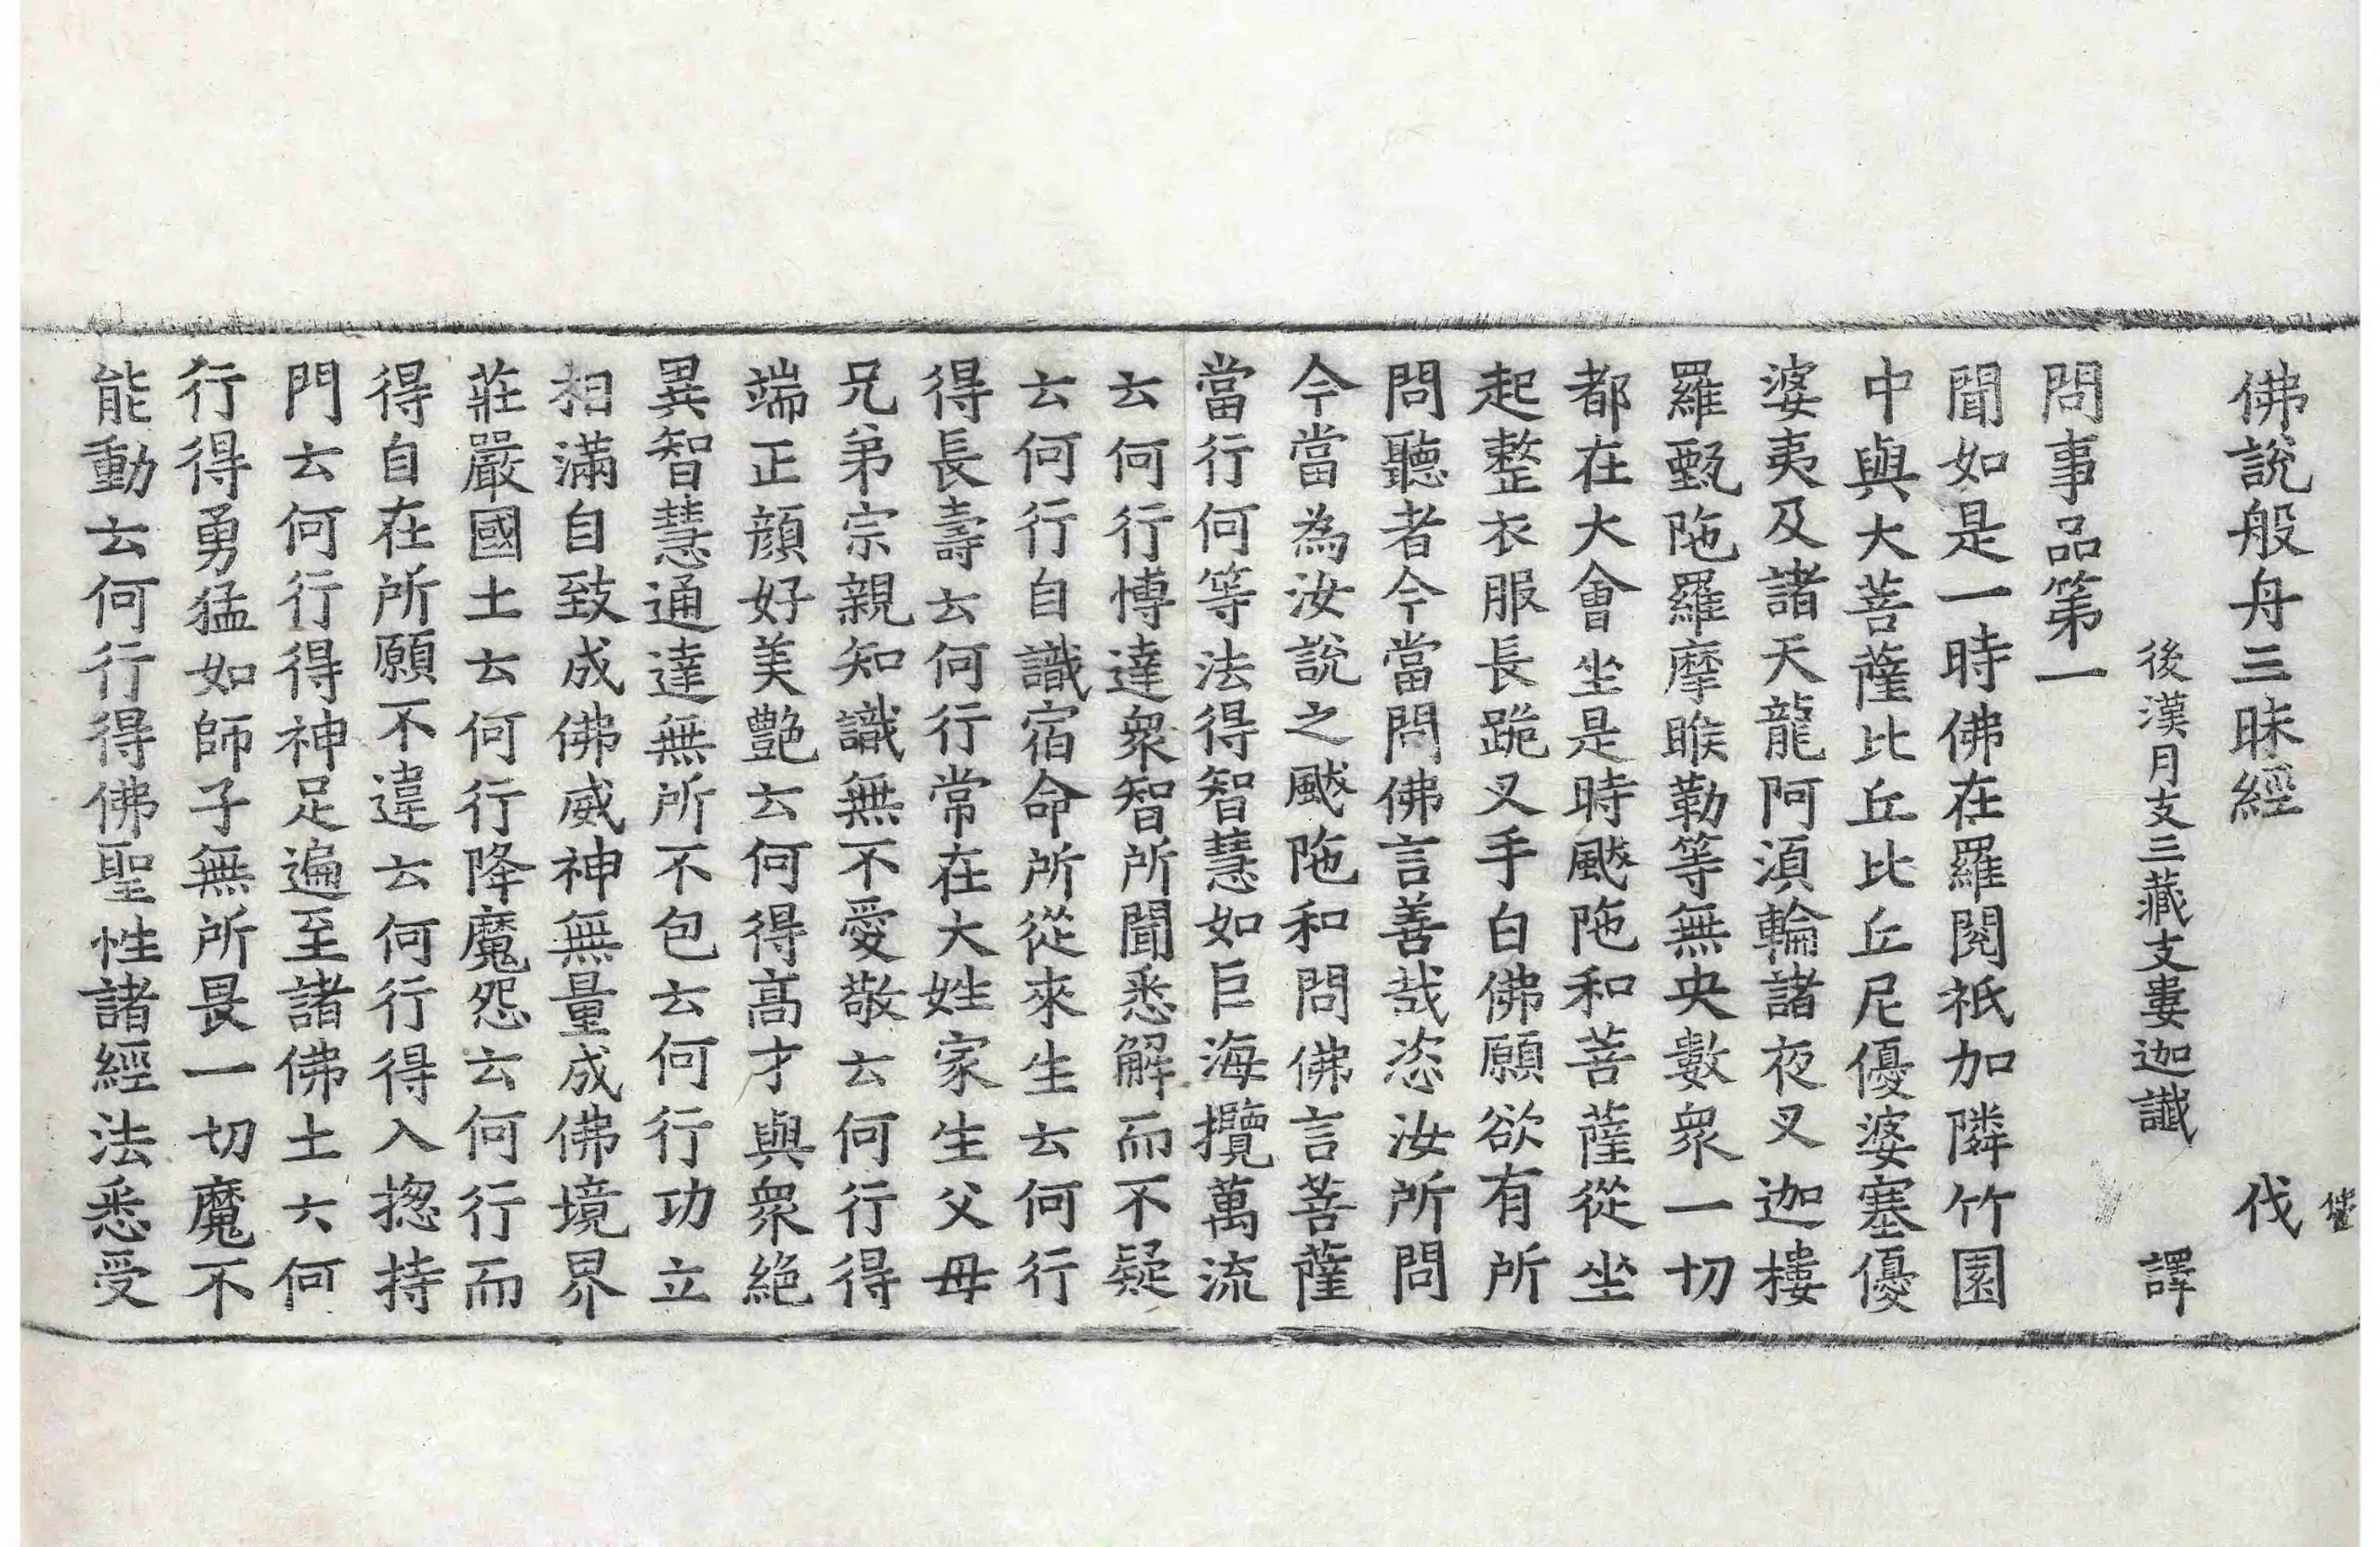 佛說般舟三昧經 伐
後漢月支三藏支婁迦讖 譯
問事品第一
聞如是一時佛在羅閱祇加隣竹園
中與大菩薩比丘比丘尼優婆塞優
婆夷及諸天龍阿湏輪諸夜叉迦樓
羅甄陁羅摩睺勒等無央數衆一切
都在大會坐是時颰陁和菩薩從坐
起整衣服長跪叉手白佛願欲有所
問聽者今當問佛言善哉恣汝所問
今當為汝說之颰陁和問佛言菩薩
當行何等法得智慧如巨海攬萬流
云何行博達衆智所聞悉解而不疑
云何行自識宿命所從來生云何行
得長壽云何行常在大姓家生父母
兄弟宗親知識無不愛敬云何行得
端正顔好美艶云何得高才與衆絶
異智慧通達無所不包云何行功立
相滿自致成佛威神無量成佛境界
莊嚴國土云何行降魔怨云何行而
得自在所願不違云何行得入揔持
門云何行得神足遍至諸佛土六何
行得勇猛如師子無所畏一切魔不
能動云何行得佛聖性諸經法悉受